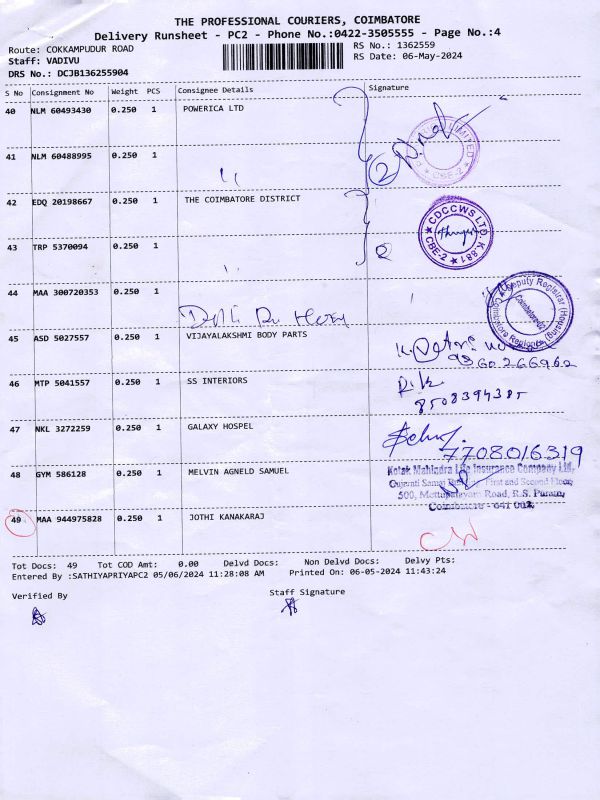 THE PROFESSIONAL COURIERS, COIMBATORE
Delivery Runsheet - PC2 - Phone No.:0422-3505555 - Page No.:4
Route: COKKAMPUDUR ROAD
Staff: VADIVU
DRS No.: DCJB136255904
RS No.: 1362559
RS Date: 06-May-2024
S No Consignment No Weight PCS Consignee Details Signature
40 NLM 60493430 0.250 1 POWERICA LTD
41 NLM 60488995 0.250 1
2
CBE-2
42 EDQ 20198667 0.250 1 THE COIMBATORE DISTRICT
CDCCWS LTD. K.881
CBE-2
43 TRP 5370094 0.250 1
2
44 MAA 300720353 0.250 1
Deputy Registrar (Housing)
Coimbatore Region
45 ASD 5027557 0.250 1 VIJAYALAKSHMI BODY PARTS
46 MTP 5041557 0.250 1 SS INTERIORS
8508394385
47 NKL 3272259 0.250 1 GALAXY HOSPEL
7708016319
48 GYM 586128 0.250 1 MELVIN AGNELD SAMUEL
Kotak Mahindra Life Insurance Company Ltd.
Gujarati Samaj Building, First and Second Floor,
500, Mettupalayam Road, R.S. Puram,
Coimbatore - 641 002.
49 MAA 944975828 0.250 1 JOTHI KANAKARAJ
Tot Docs: 49 Tot COD Amt: 0.00 Delvd Docs: Non Delvd Docs: Delvy Pts:
Entered By :SATHIYAPRIYAPC2 05/06/2024 11:28:08 AM Printed On: 06-05-2024 11:43:24
Verified By
Staff Signature